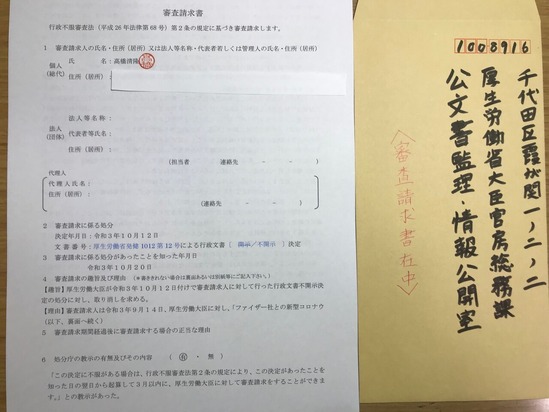 審査請求書
行政不服審査法（平成26年法律第68号）第2条の規定に基づき審査請求します。
1 審査請求人の氏名・住所（居所）又は法人等名称・代表者若しくは管理人の氏名・住所（居所）
個人
（総代）
氏 名：高橋清隆
住所（居所）：
法人
（団体）
法人等名称：
代表者等氏名：
住所（居所）：
（担当者 連絡先 － － ）
代理人
代理人氏名：
住所（居所）：
（連絡先 － － ）
2 審査請求に係る処分
決定年月日：令和3年10月12日
文 書 番 号：厚生労働省発健1012第12号による行政文書〔 開示／不開示 〕決定
3 審査請求に係る処分があったことを知った年月日
令和3年10月20日
4 審査請求の趣旨及び理由（＊書ききれない場合は裏面あるいは別紙等にご記入下さい。）
【趣旨】厚生労働大臣が令和3年10月12日付けで審査請求人に対して行った行政文書不開示決
定の処分に対し、取り消しを求める。
【理由】審査請求人は令和3年9月14日、厚生労働大臣に対し、「ファイザー社との新型コロナウ
（以下、裏面へ続く）
5 審査請求期間経過後に審査請求する場合の正当な理由
6 処分庁の教示の有無及びその内容 （ 有 ・ 無 ）
「この決定に不服がある場合は、行政不服審査法第2条の規定により、この決定があったことを
知った日の翌日から起算して3月以内に、厚生労働大臣に対して審査請求をすることができま
す。」との教示があった。
1008916
千代田区霞が関一ノ二ノ二
厚生労働省大臣官房総務課
公文書監理・情報公開室
〈審査請求書在中〉